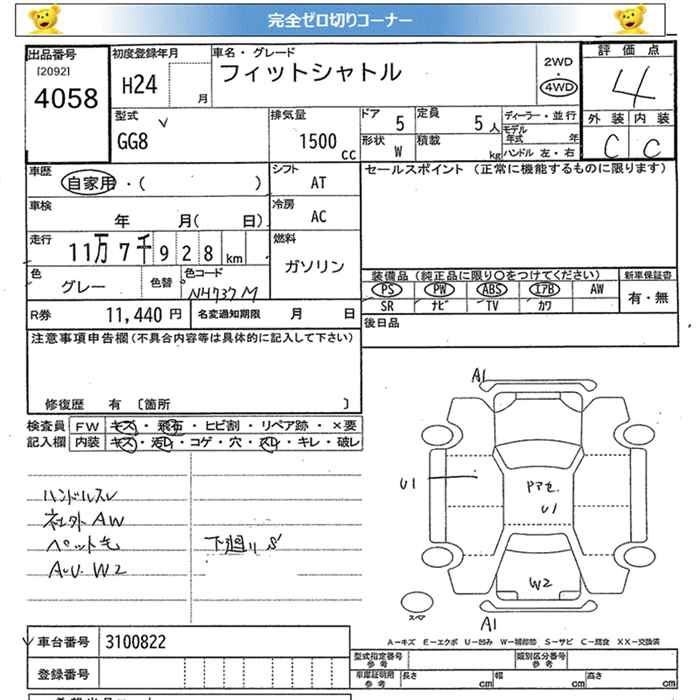 完全ゼロ切りコーナー
出品番号 初度登録年月 車名・グレード 評価点
[2092] 4058
H24 月
フィットシャトル
2WD・4WD
4
型式 GG8
排気量 1500 cc
ドア 5 定員 5人
形状 W 積載 kg
ディーラー・並行
モデル年式 年
ハンドル 左・右
外装 内装
C C
車歴 自家用・( )
シフト AT
セールスポイント (正常に機能するものに限ります)
車検 年 月( 日)
冷房 AC
走行 11万7千928km
燃料 ガソリン
色 グレー 色替 色コード NH737M
装備品 (純正品に限り○をつけてください) 新車保証書
PS PW ABS エアB AW 有・無
SR ナビ TV カワ
R券 11,440円 名変通知期限 月 日
後日品
注意事項申告欄(不具合内容等は具体的に記入して下さい)
修復歴 有 〔箇所 〕
検査員記入欄
FW キズ・飛石・ヒビ割・リペア跡・×要
内装 キズ・汚れ・コゲ・穴・スレ・キレ・破レ
ハンドルスレ
社外AW
ペット毛 下廻りS
AU W2
A1
U1
ドアセ.
U1
W2
スペア
A1
A−キズ E−エクボ U−凹み W−補修跡 S−サビ C−腐食 XX−交換済
車台番号 3100822
登録番号
型式指定番号 参考 類別区分番号 参考
車庫証明用 参考 長さ cm 幅 cm 高さ cm